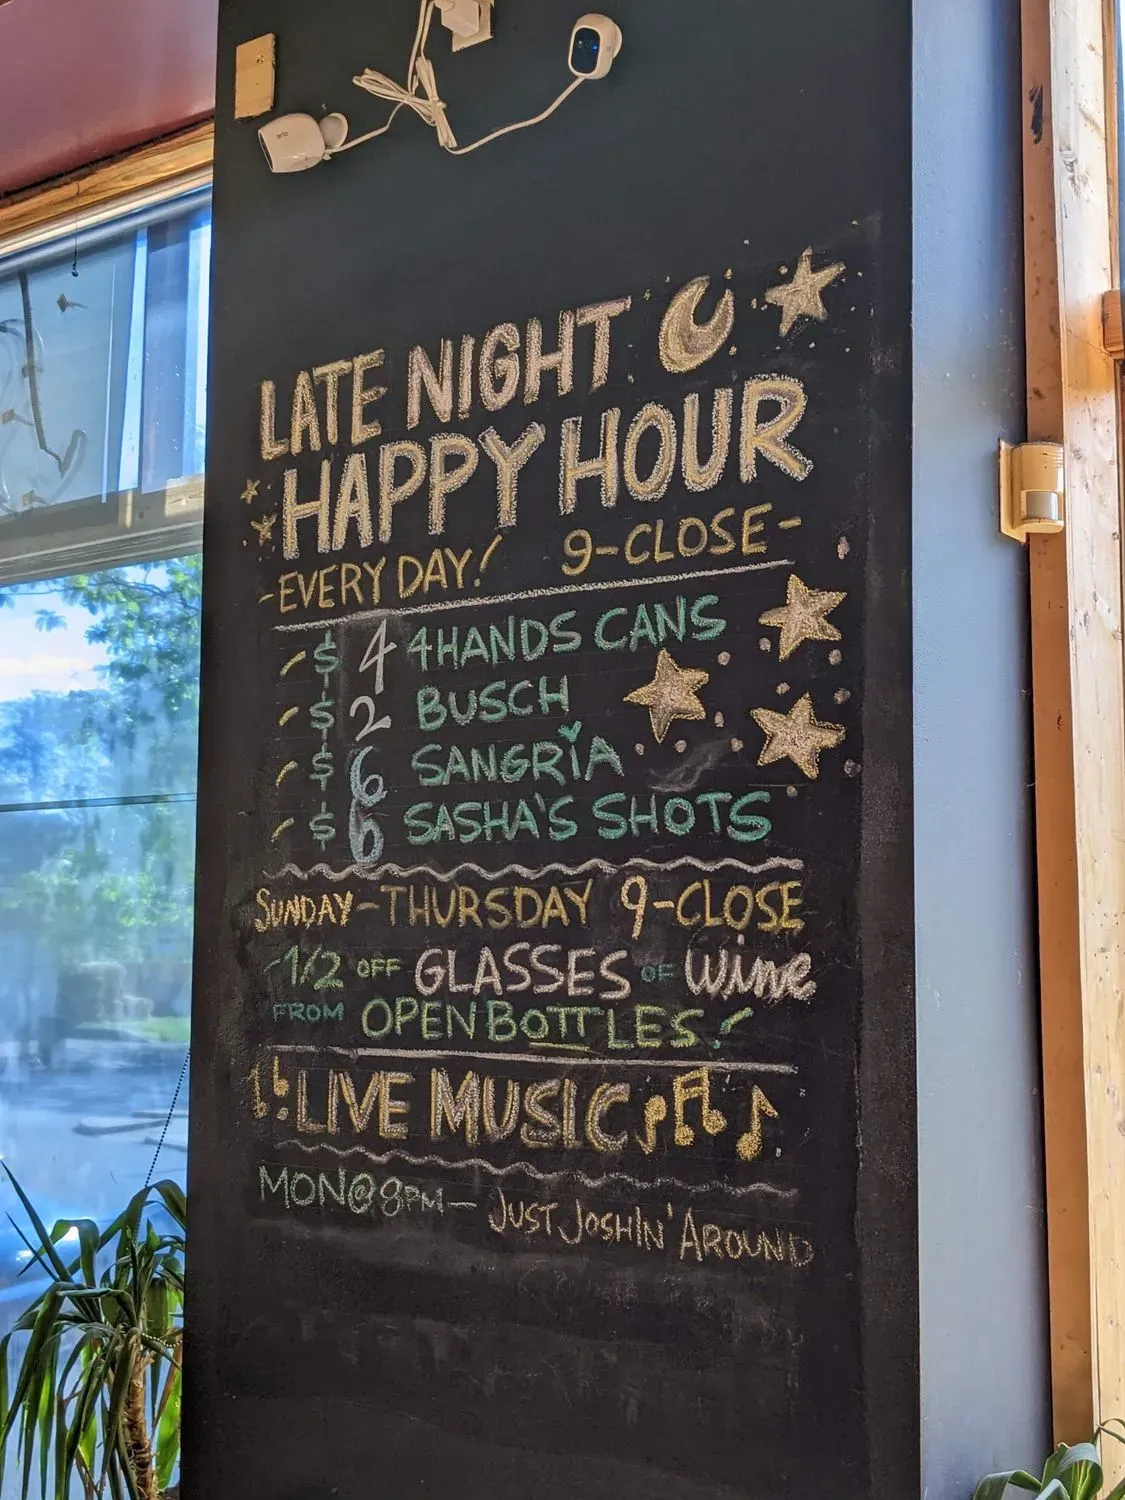 arlo
LATE NIGHT
HAPPY HOUR
-EVERY DAY! 9-CLOSE-
- $ 4 4HANDS CANS
- $ 2 BUSCH
- $ 6 SANGRIA
- $ 6 SASHA'S SHOTS
SUNDAY-THURSDAY 9-CLOSE
-1/2 OFF GLASSES OF Wine
FROM OPEN BOTTLES!
LIVE MUSIC
MON@8PM- JUST JOSHIN' AROUND